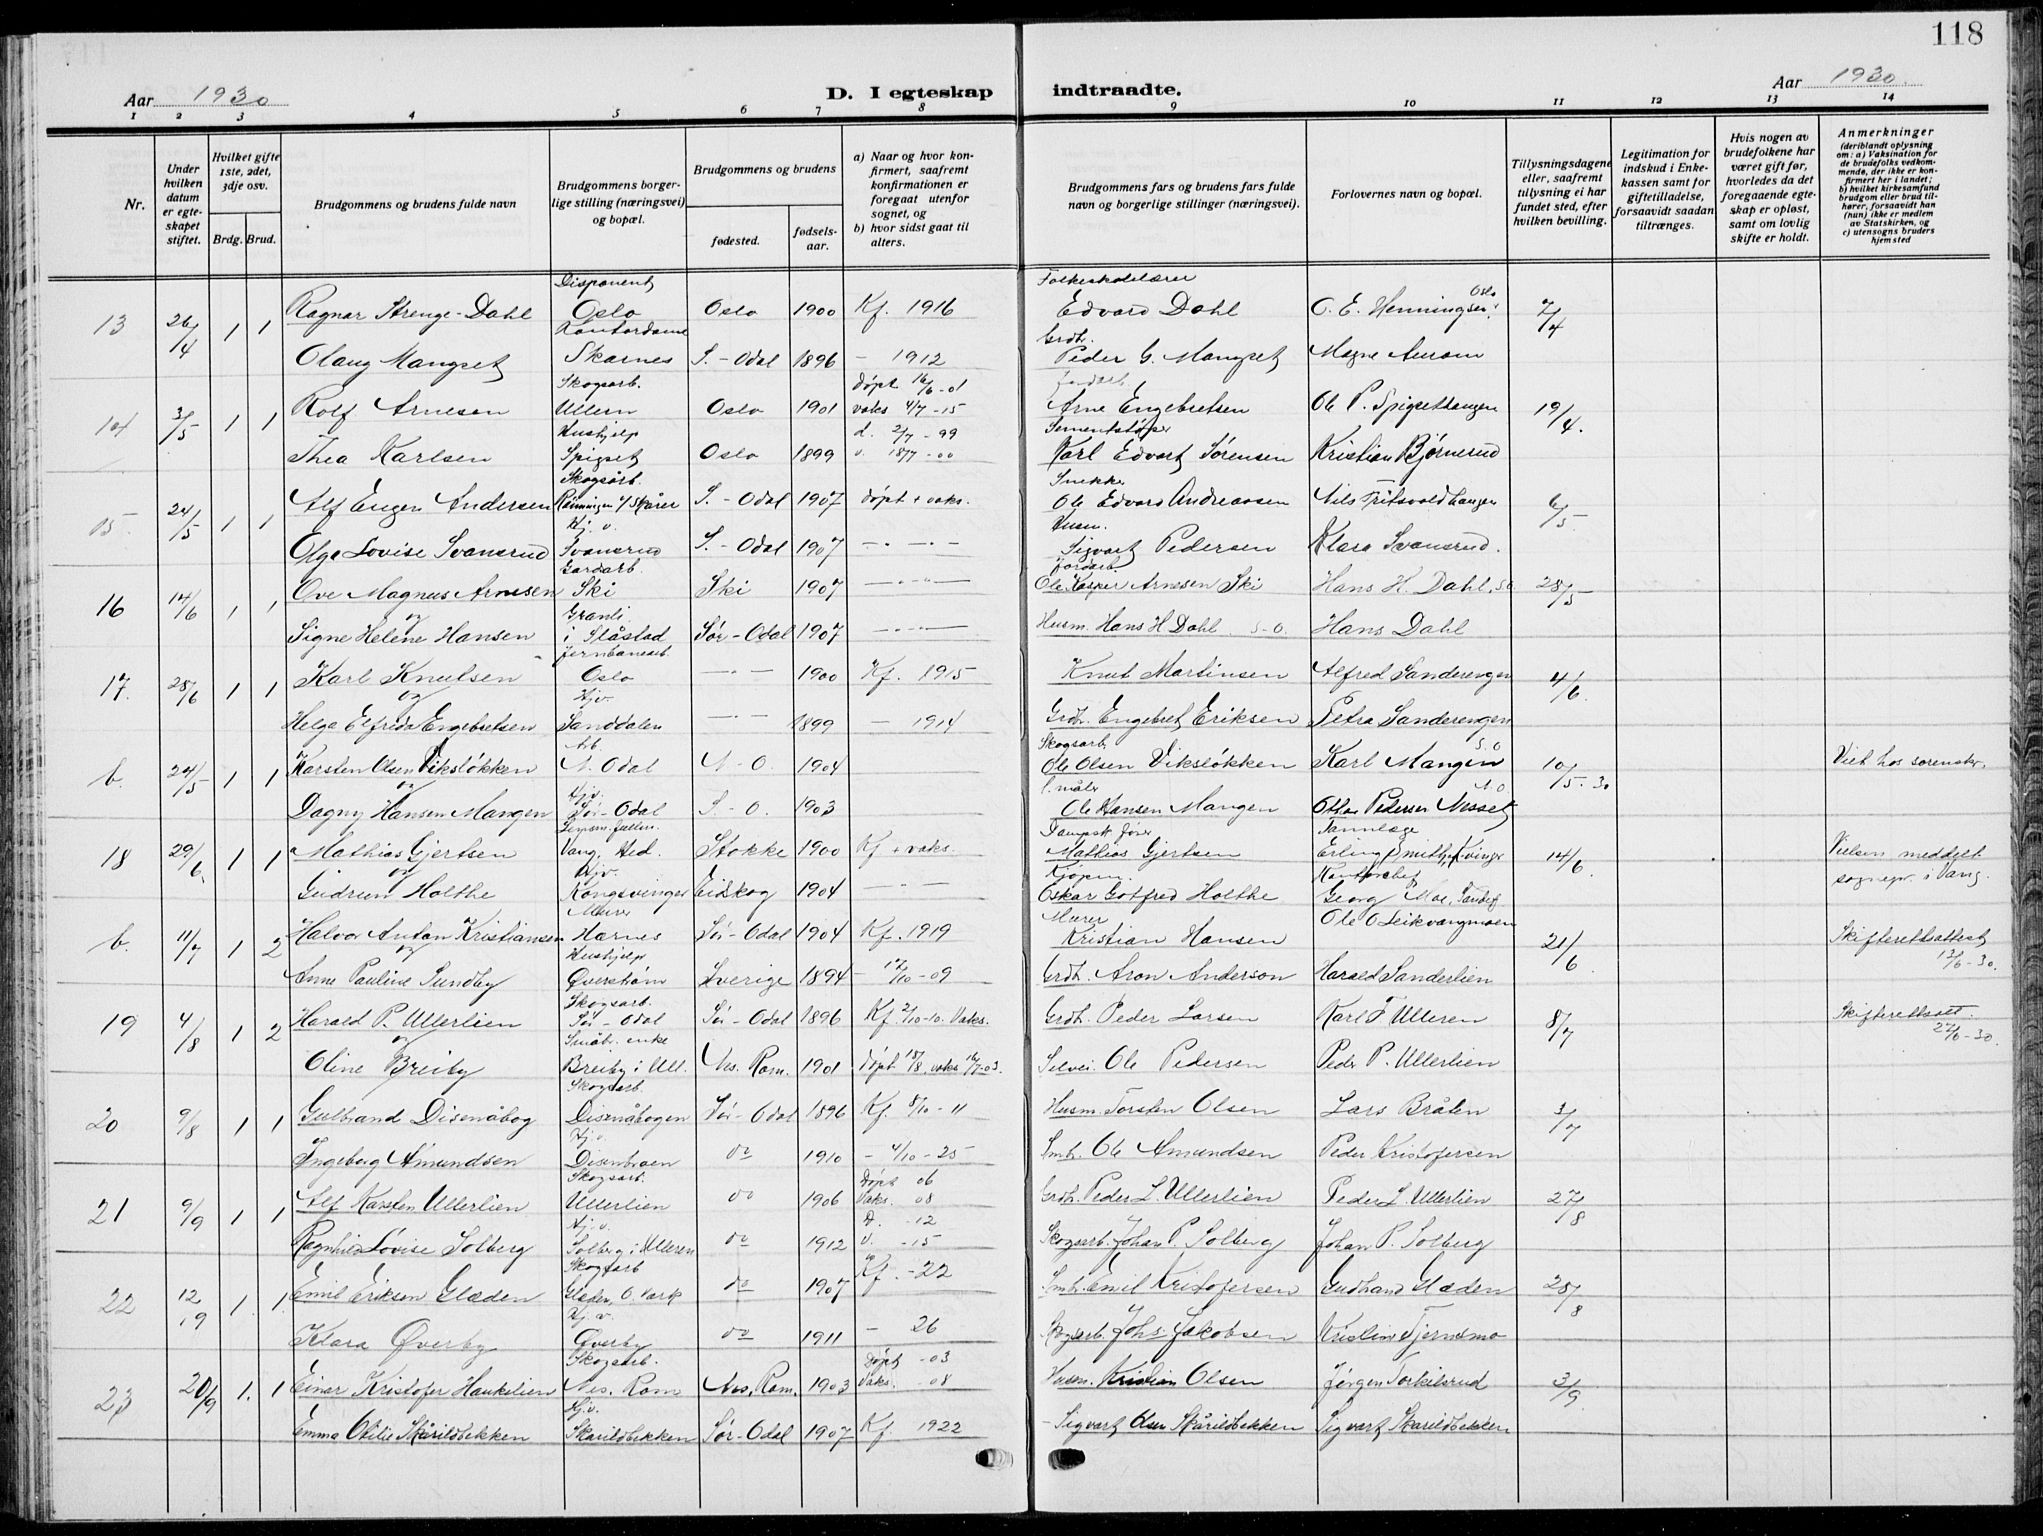 118
Aar 1930
D. I egteskap
indtraadte.
Aar 1930
1 2 3 4 5 6 7 8 9 10 11 12 13 14
Nr.
Under hvilken datum er egteskapet stiftet.
Hvilket gifte 1ste, 2det, 3dje osv.
Brdg. Brud.
Brudgommens og brudens fulde navn
Brudgommens borgerlige stilling (næringsvei) og bopæl.
Brudgommens og brudens
fødested.
fødselsaar.
a) Naar og hvor konfirmert, saafremt konfirmationen er foregaat utenfor sognet, og
b) hvor sidst gaat til alters.
Brudgommens fars og brudens fars fulde navn og borgerlige stillinger (næringsvei).
Forlovernes navn og bopæl.
Tillysningsdagene eller, saafremt tillysning ei har fundet sted, efter hvilken bevilling.
Legitimation for indskud i Enkekassen samt for giftetilladelse, forsaavidt saadan tiltrænges.
Hvis nogen av brudefolkene har været gift før, hvorledes da det foregaaende egteskap er opløst, samt om lovlig skifte er holdt.
Anmerkninger
(deriblandt oplysning om: a) Vaksination for de brudefolks vedkommende, der ikke er konfirmert her i landet; b) hvilket kirkesamfund brudgom eller brud tilhører, forsaavidt han (hun) ikke er medlem av Statskirken, og c) utensogns bruders hjemsted
Disponent Folkeskolelærer
13 26/4 1 1 Ragnar Strenge-Dahl Oslo Oslo 1900 Kf. 1916 Edvard Dahl O. E. Henningsen, Oslo 7/4
Kontordame Grdb.
Olaug Mangset Skarnes S.-Odal 1896 - 1912 Peder G. Mangset Magne Aurom
Skogsarb. døpt 16/6-01
14 3/5 1 1 Rolf Arnesen Ullern Oslo 1901 vaks 4/7-15 Arne Engebretsen Ole P. Spigsethaugen 19/4.
Hushjelp d. 2/7-99 Sementstøper
Thea Karlsen Spigset Oslo 1899 v. 18/7-00 Karl Edvart Sørensen Kristian Bjørnerud
Skogsarb. Snekker
15 24/5 1 1 Alf Eugen Andersen Rønningen u/ Skårer S.-Odal 1907 døpt + vaks. Ole Edvard Andreassen Nils Fritsvoldhaugen 6/5.
Hj. v. Husm.
Olga Lovise Svansrud Svansrud S.-Odal 1907 Sigvart Pedersen Klara Svansrud.
Gardarb. Jordarb.
16 14/6 1 1 Ove Magnus Arnesen Ski Ski 1907 Ole Kasper Arnesen Ski Hans H. Dahl, S.O. 28/5
og Granli
Signe Helene Hansen i Ståstad Sør-Odal 1907 Husm. Hans H Dahl S-O. Hans Dahl
Jernbanearb.
17. 28/6 1 1 Karl Knutsen Oslo 1900 Kf. 1915 Knut Martinsen Alfred Sanderengen 4/6.
og Hjv.
Helga Elfrida Engebretsen Sanddalen 1899 - 1914 Grdb. Engebret Eriksen Petra Sanderengen
Arb. Skogsarb. S.O
b. 24/5 1 1 Karsten Olsen Viksløkken N. Odal N-O. 1904 Ole Olsen Viksløkken Karl Mangen 10/5-30 Viet hos sorenskr.
og Hjv. N.O
Dagny Hansen Mangen Sør-Odal S-O. 1903 Ole Hansen Mangen Othar Pedersen Nesset
Lensm. fullm. Tannlæge
18 29/6. 1 1 Mathias Gjertsen Vang, Hed. Stokke 1900 Kf + vaks. Mathias Gjertsen Erling Smith, Kvinger 14/6. Vielsen meddelt
og Hjv. Kjøpm. Kontorchef sognepr. i Vang.
Gudrun Holthe Kongsvinger Eidskog 1904 Oskar Gotfred Holthe Georg Moe,
Murer Murer Ole O Leikvangmoen
b. 11/7 1 2 Halvor Anton Kristiansen Harnes Sør-Odal 1904 Kf. 1919 Kristian Hansen 21/6 Skifterettsattest
og Hushjelp 13/6-30.
Anne Pauline Sundby Øverstøm Sverige 1894 - 17/10-09 Grdb. Aron Anderson Harald Sanderlien
Skogsarb.
19 4/8 1 2 Harald P. Ullerlien Sør-Odal Sør-Odal 1896 Kf. 2/10-10. Vaks. Grdb. Peder Larsen Karl F Ulleren 8/7 Skifterettsatt.
og Småbr. enke 27/6-30.
Oline Breiby Breiby i Ull. Nes. Rom. 1901 døpt 18/8, vaks 16/7-03. Selvei. Ole Pedersen Peder P. Ullerlien
Skogsarb.
20 9/8 1 1 Gulbrand Disenåbog Disenåbogen Sør-Odal 1896 Kf. 8/10-11 Husm. Torsten Olsen Lars Bråten 3/7
Hj. v.
Ingeborg Amundsen Disenbroen do 1910 - 4/10-25 Smb. Ole Amundsen Peder Kristofersen
Skogsarb. Døpt 06
21 9/9 1 1 Alf Karsten Ullerlien Ullerlien do 1906 Vaks. 08 Grdb. Peder L. Ullerlien Peder L Ullerlien 27/8
Hj. v. D. -12
Ragnhild Lovise Solberg Solberg i Ulleren do 1912 V. -15 Skogsarb. Johan P. Solberg Johan P. Solberg
Skogsarb
22 12/9 1. 1. Emil Eriksen Glæden Glæden, O. Vark do 1907 Kf. -22 Smb. Emil Kristofersen Gudbrand Glæden 28/8
Hj. v.
Klara Øverby Øverby do 1911 - 26 Skogsarb. Johs. Jakobsen Kristine Tjernsmo
Skogsarb. Døpt -03
23 20/9 1. 1 Einar Kristofer Haukilien Nes. Rom Nes, Rom. 1903 Vaks. -08 Husm. Kristian Olsen Jørgen Torkilsrud 3/9.
Hj.v.
Emma Otilie Skårildbekken Skarildbekken Sør-Odal 1907 Kf. 1922 - Sigvart Olsen Skårildbekken Sigvart Skarildbekken